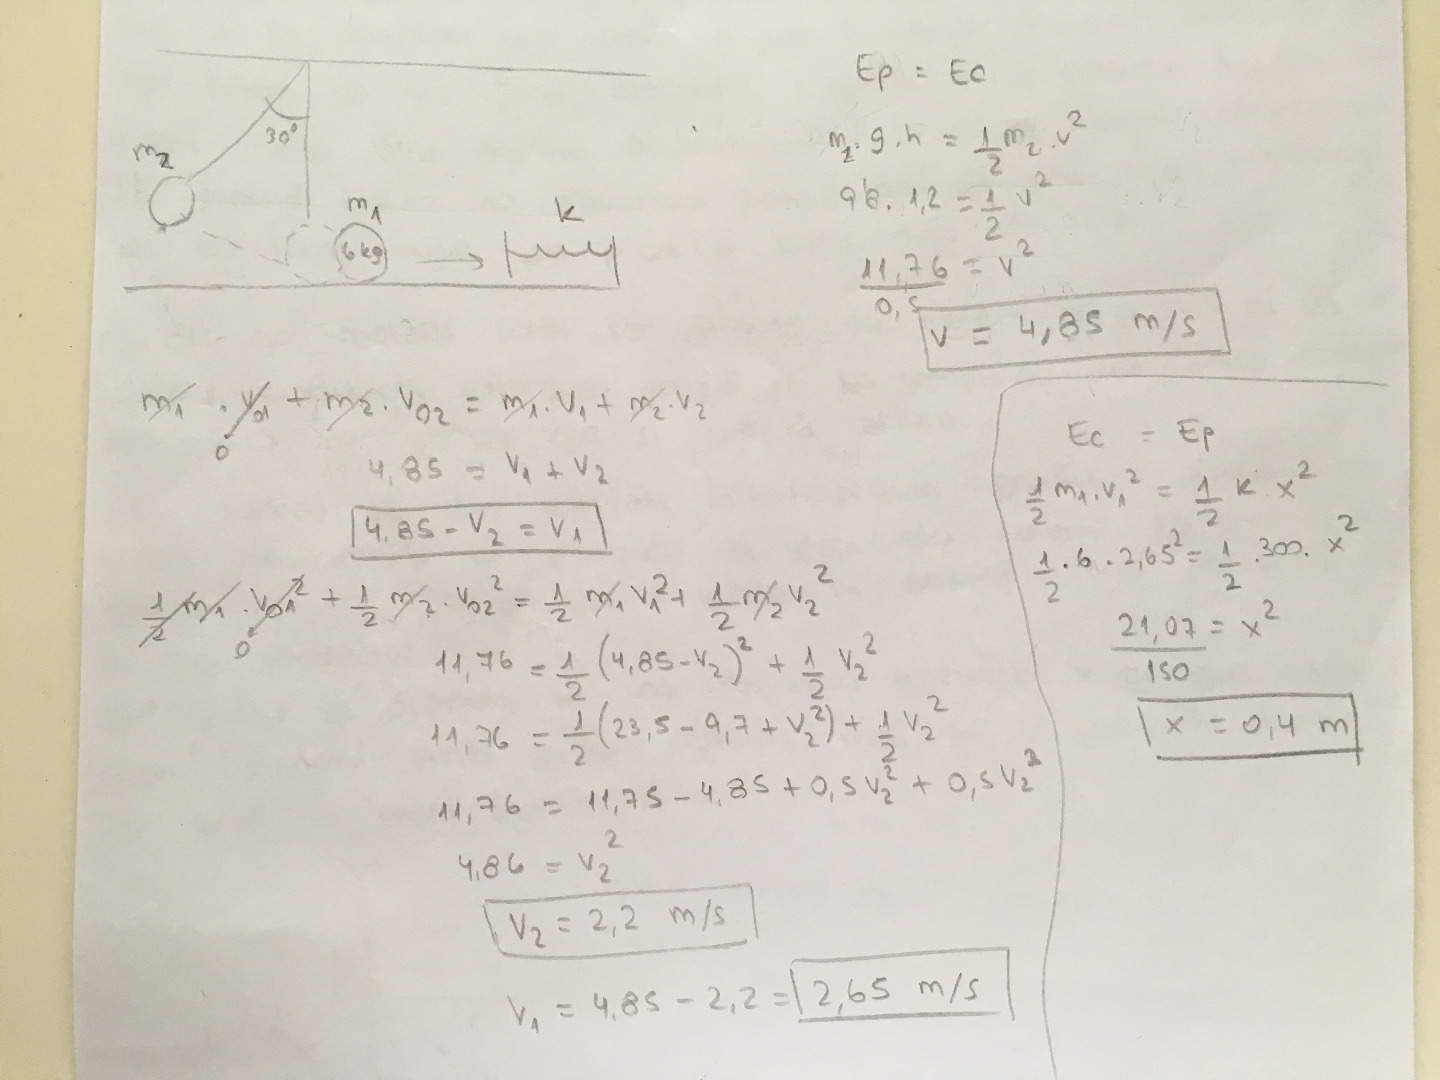 30°
m2
m1
6kg
k
Ep = Ec
m2 . g . h = 1/2 m2 . v²
9,8 . 1,2 = 1/2 v²
11,76/0,5 = v²
v = 4,85 m/s
m1 . v01 + m2 . v02 = m1 . v1 + m2 . v2
0
4,85 = v1 + v2
4,85 - v2 = v1
1/2 m1 . v01² + 1/2 m2 . v02² = 1/2 m1 v1² + 1/2 m2 v2²
0
11,76 = 1/2 (4,85 - v2)² + 1/2 v2²
11,76 = 1/2 (23,5 - 9,7 + v2²) + 1/2 v2²
11,76 = 11,75 - 4,85 + 0,5 v2² + 0,5 v2²
4,86 = v2²
v2 = 2,2 m/s
v1 = 4,85 - 2,2 = 2,65 m/s
Ec = Ep
1/2 m1 . v1² = 1/2 k x²
1/2 . 6 . 2,65² = 1/2 . 300 . x²
21,07/150 = x²
x = 0,4 m